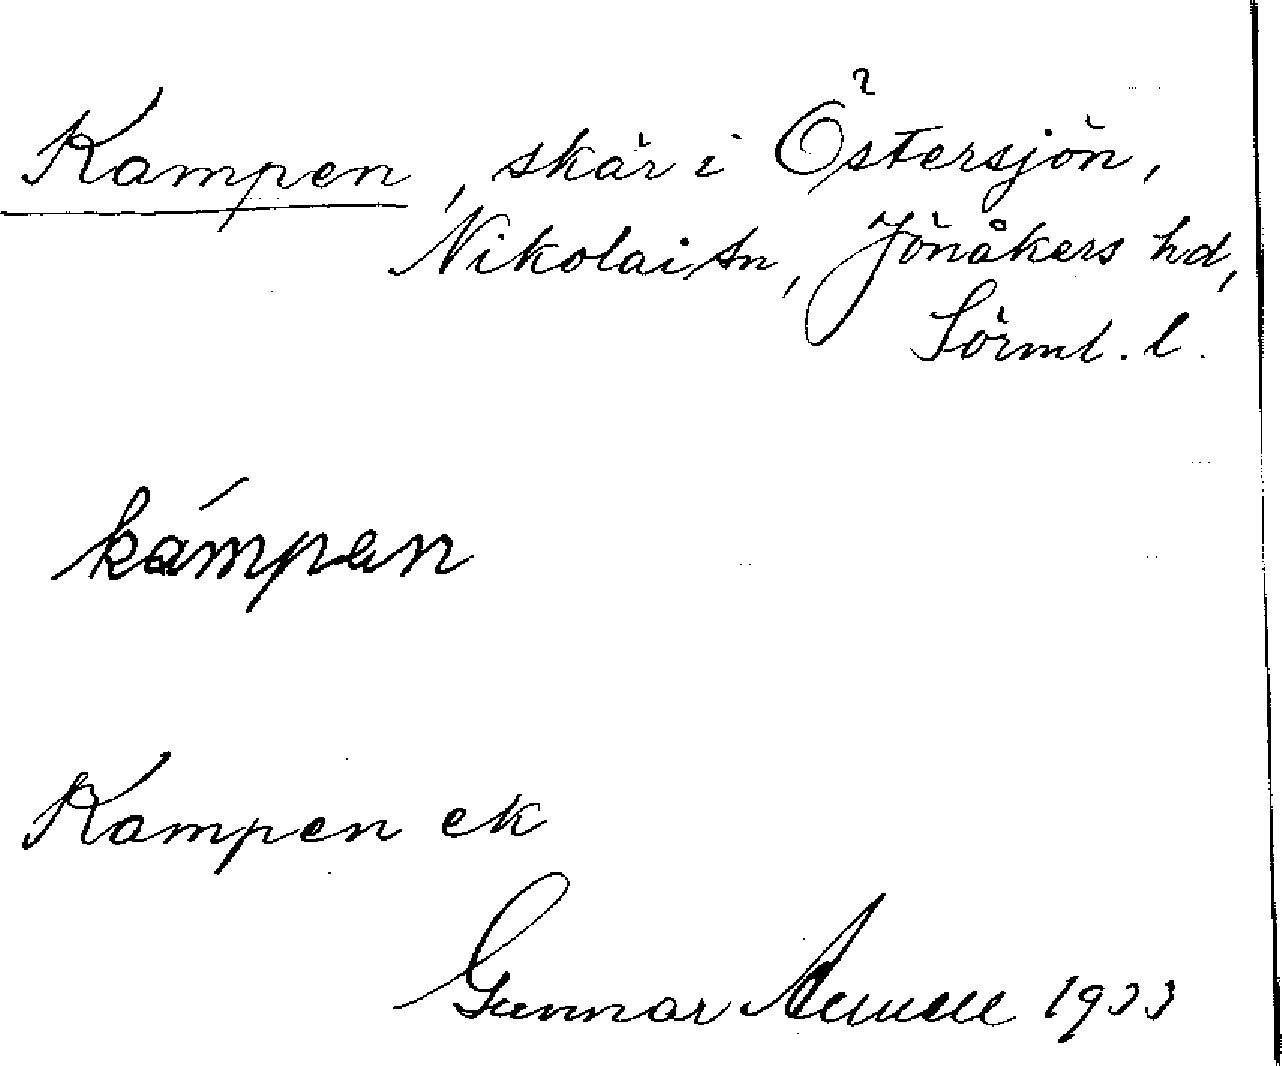 Kampen, skär i Östersjön,
Nikolai sn, Jönåkers hd,
Sörml. l.
kámpen
Kampen ek
Gunnar 1933